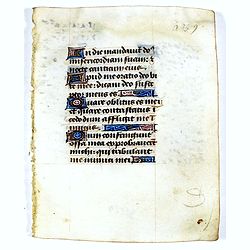 In die mandavit do
misericordiam suam: &
nocte canticum eius.
Apud me oratio deo vi
te mee: dicam deo suscep
tor meus es
Quare oblitus es mei
et quare contristatus i
cedo dum affligit me i
micus
Dum confringunt
ossa mea exprobraver
michi: qui tribulant
me inimici mei